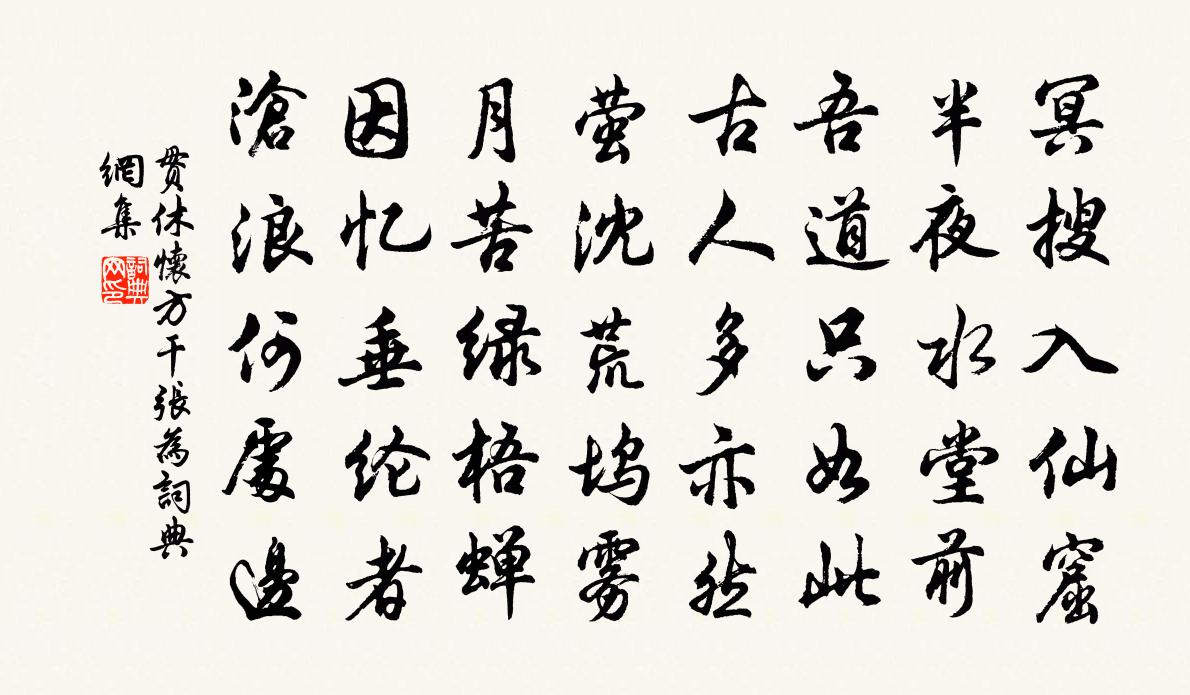 冥搜入仙窟
半夜水堂前
吾道只如此
古人多亦然
萤沈荒坞雾
月苦绿梧蝉
因忆垂纶者
滄浪何處邊
贯休懷方干張為詞典
網集
詞典網印